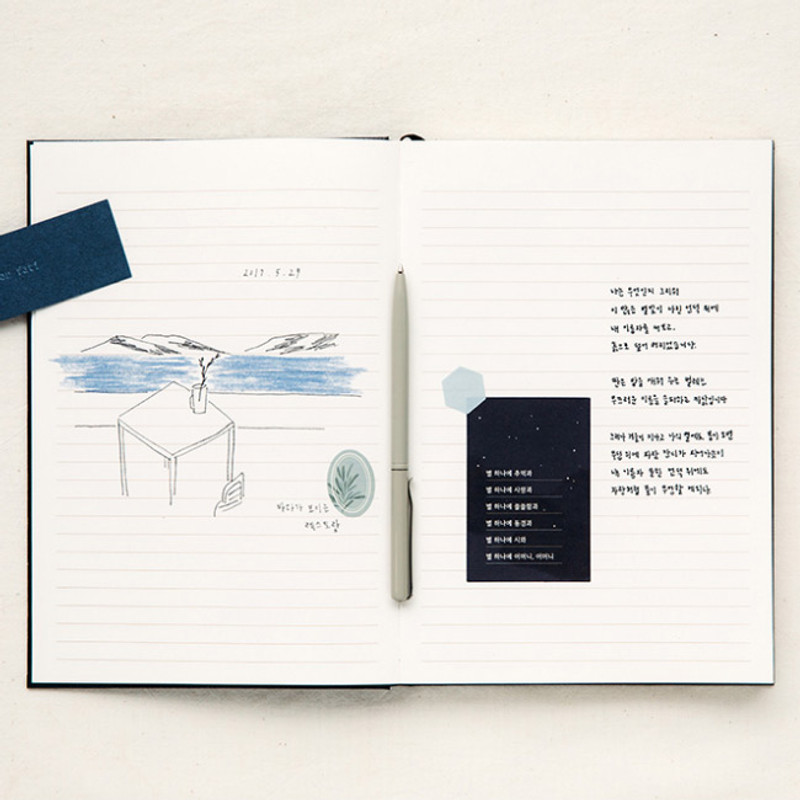 2017.5.29
바다가 보이는
레스토랑
별 하나에 추억과
별 하나에 사랑과
별 하나에 쓸쓸함과
별 하나에 동경과
별 하나에 시와
별 하나에 어머니, 어머니
나는 무엇인지 그리워
이 많은 별빛이 나린 언덕 위에
내 이름자를 써보고,
흙으로 덮어 버리었습니다.
딴은 밤을 새워 우는 벌레는
부끄러운 이름을 슬퍼하는 까닭입니다
그러나 겨울이 지나고 나의 별에도 봄이 오면
무덤 위에 파란 잔디가 피어나듯이
내 이름자 묻힌 언덕 위에도
자랑처럼 풀이 무성할 게외다